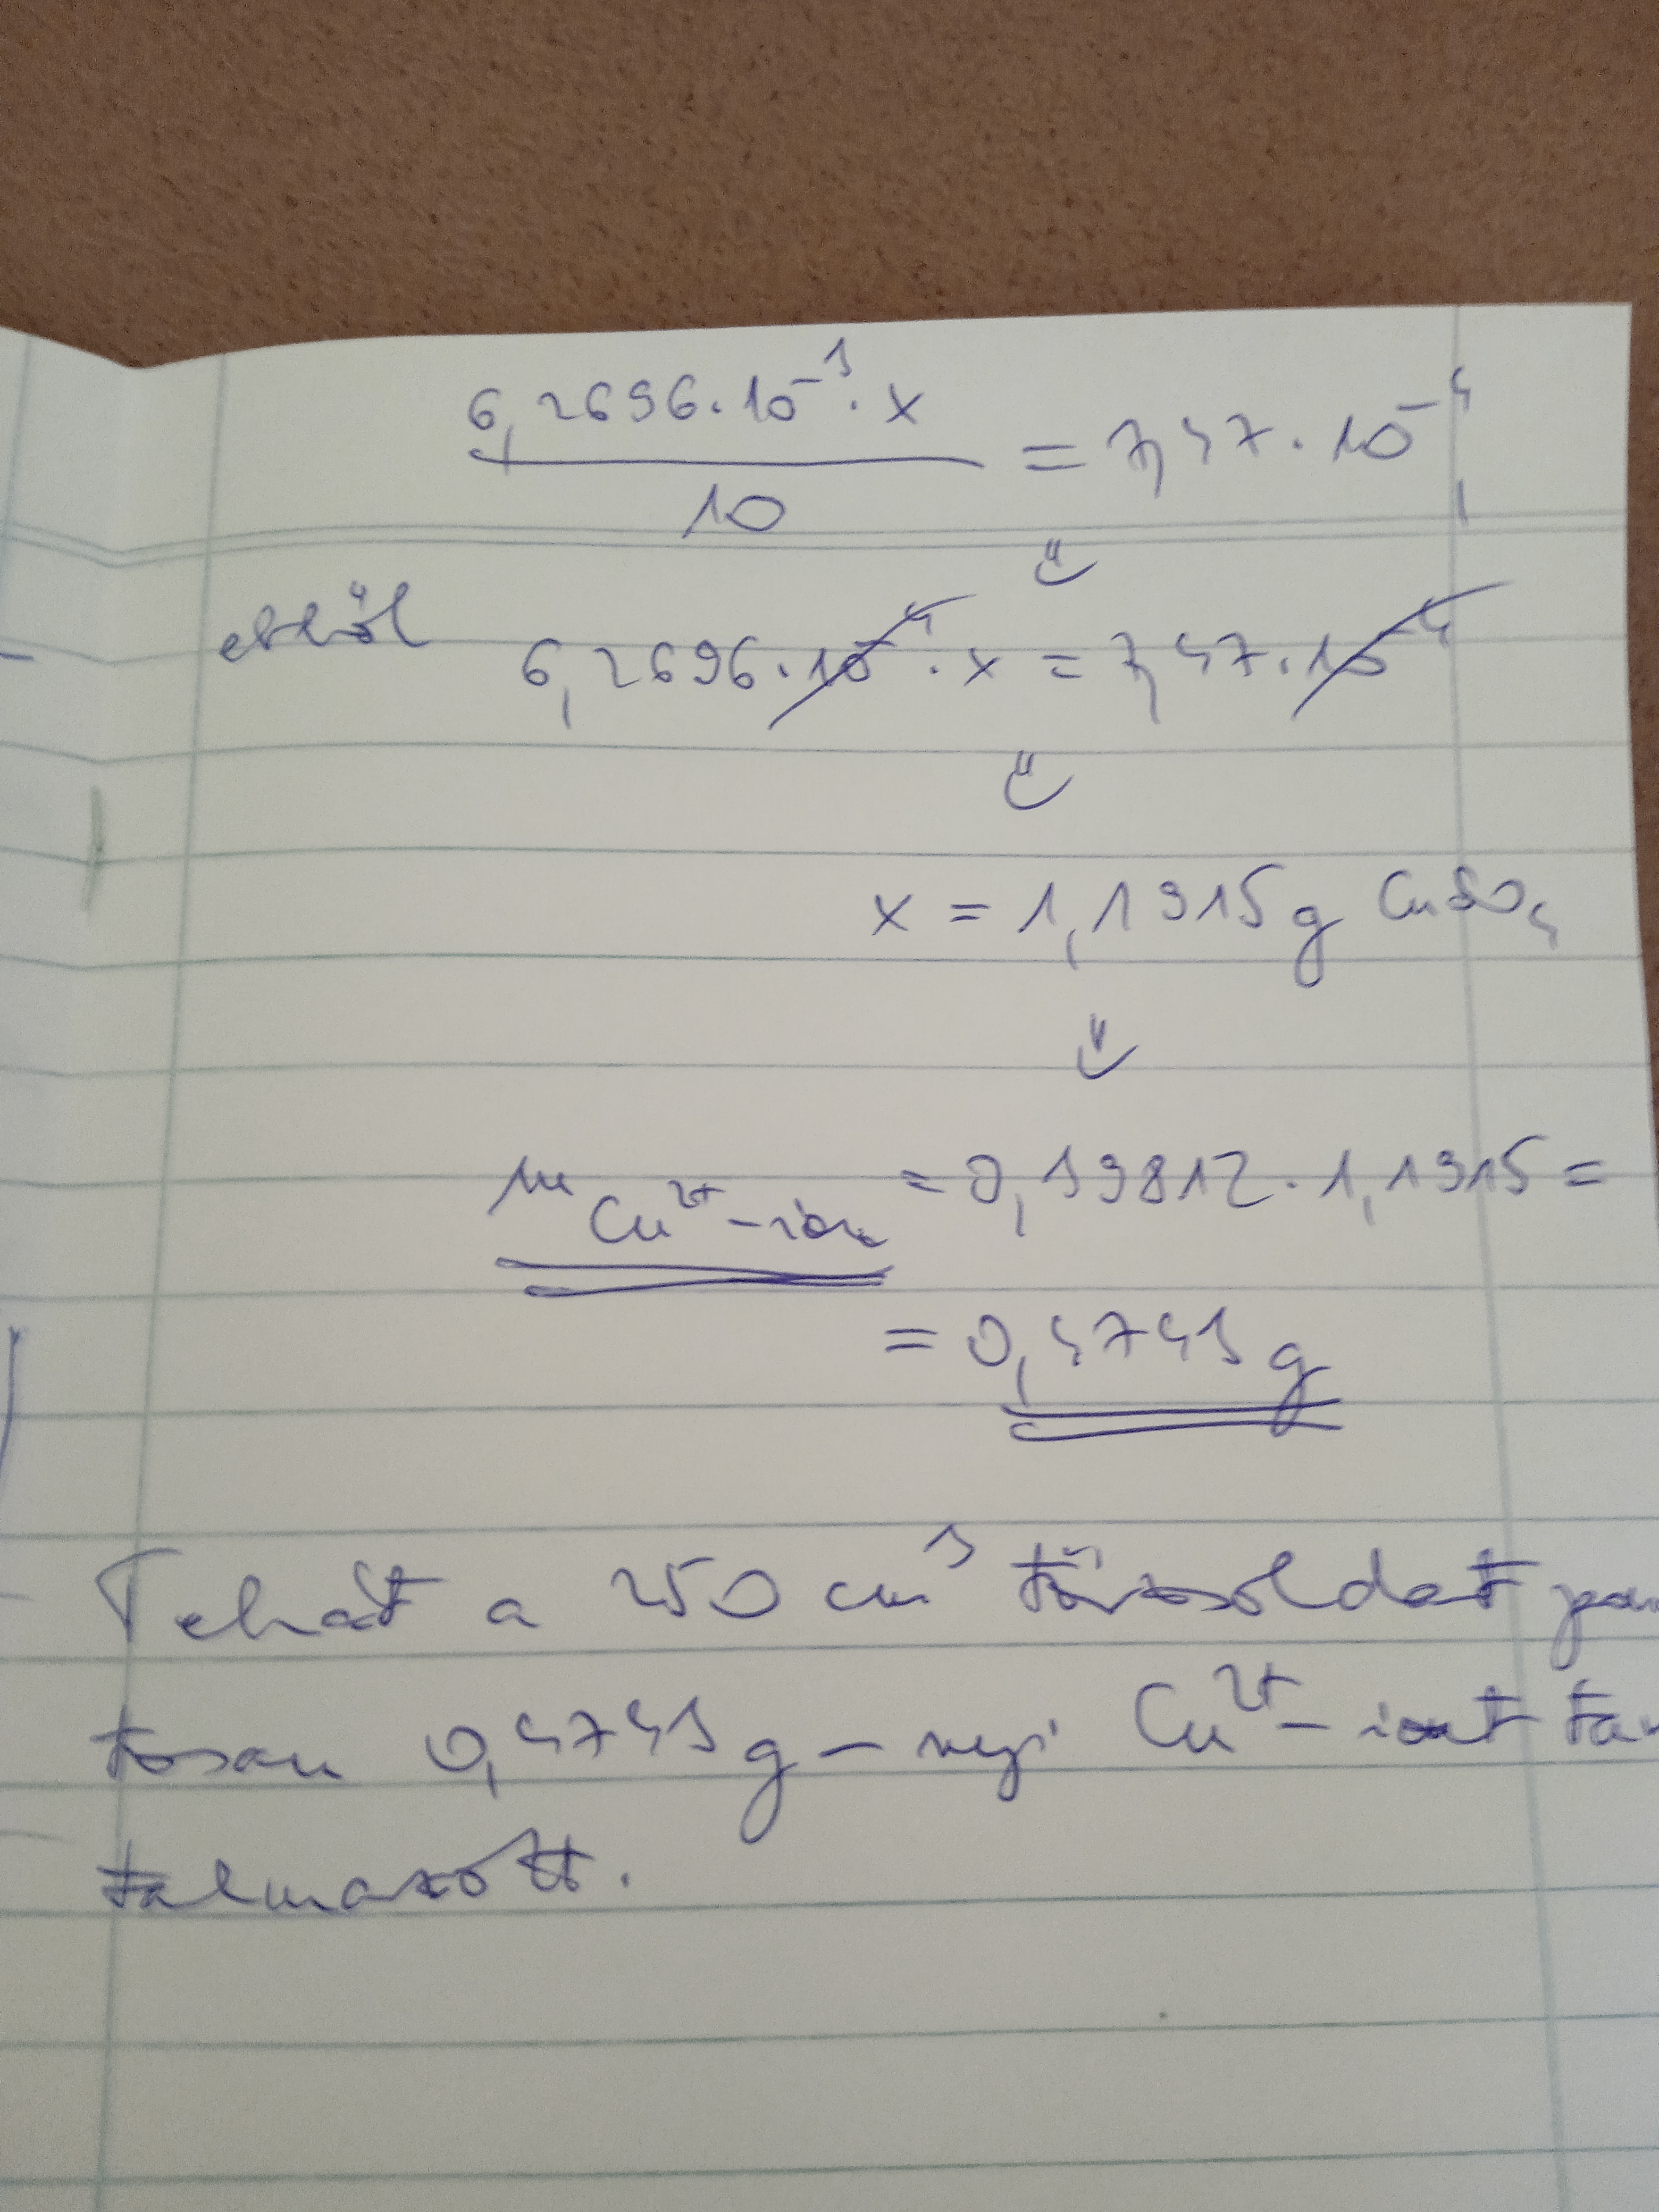 6,2696·10⁻³·x / 10 = 7,47·10⁻⁴
⇓
ebből 6,2696·10⁻⁴·x = 7,47·10⁻⁴
⇓
x = 1,1915 g CuSO₄
⇓
m Cu²⁺-ion = 0,39812·1,1915 =
= 0,4743 g
Tehát a 250 cm³ törzsoldat pon
tosan 0,4743 g-nyi Cu²⁺-iont tar
talmazott.